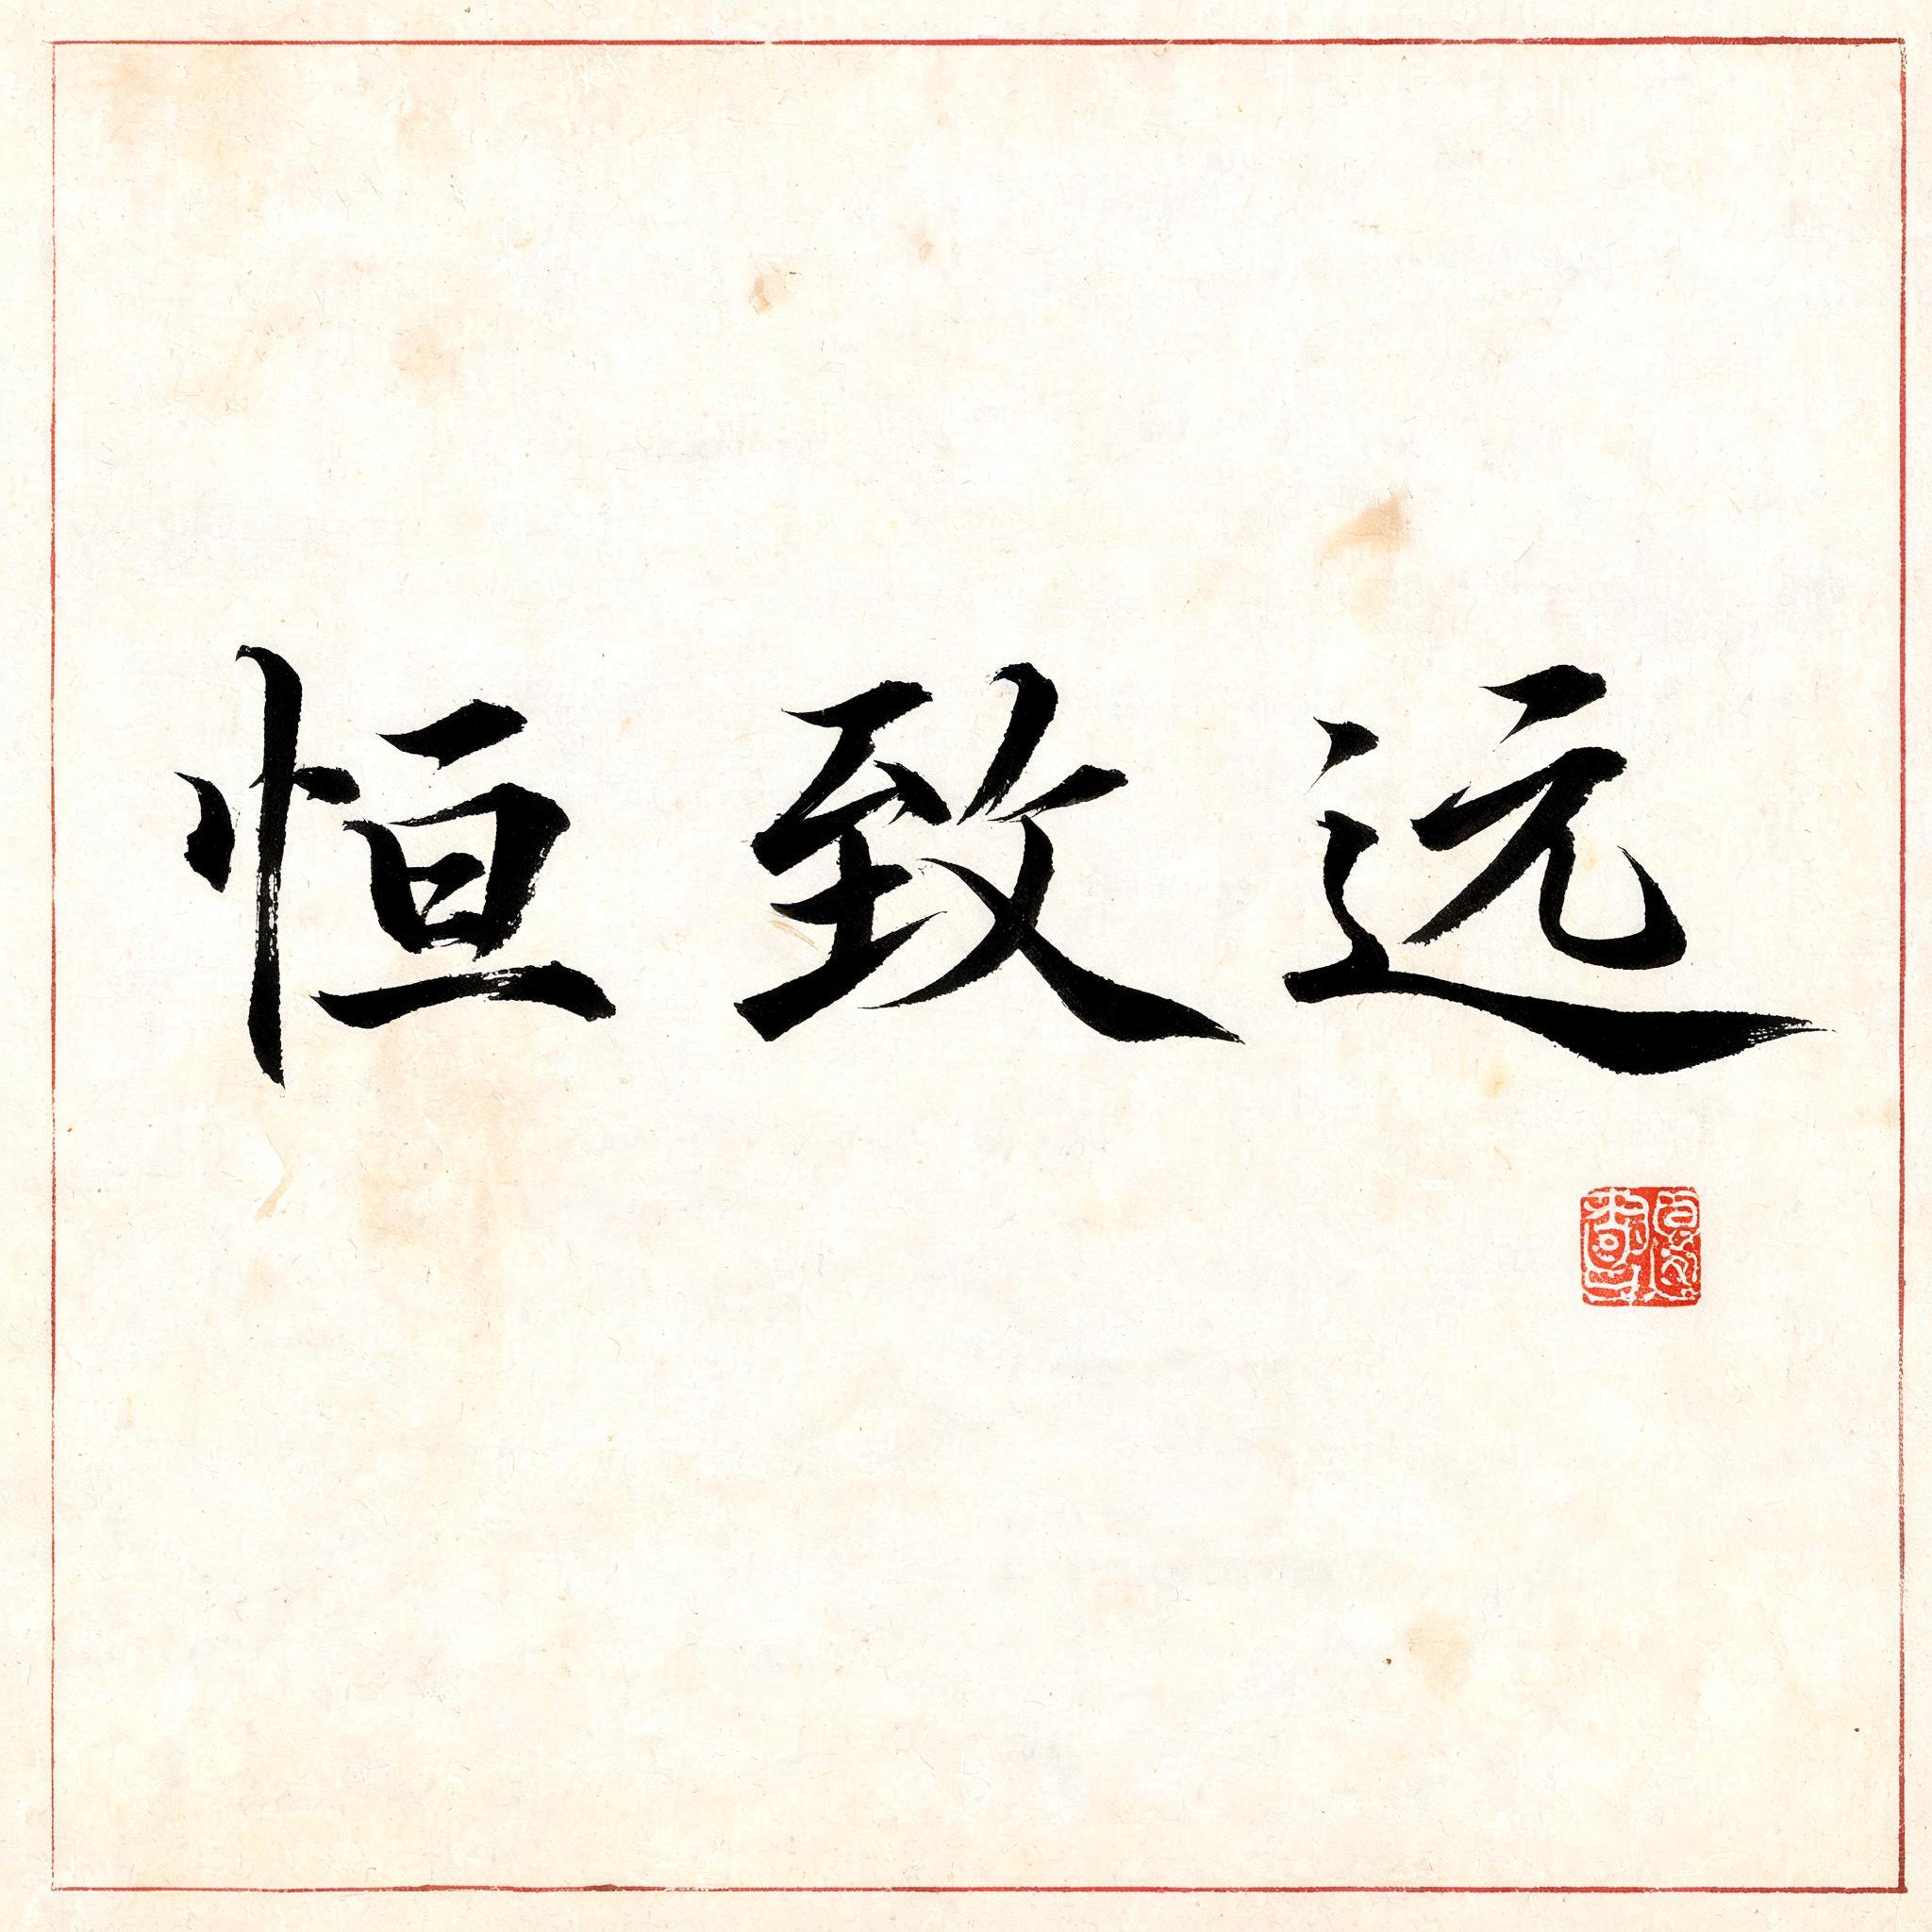 恒致远